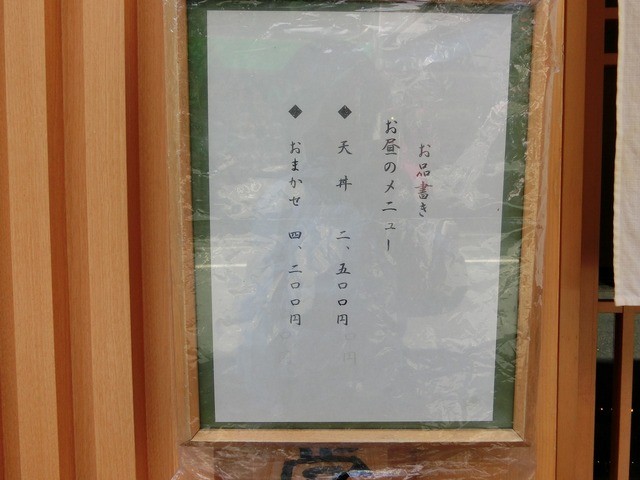 お品書き
お昼のメニュー
◆ 天丼 二、五〇〇円
◆ おまかせ 四、二〇〇円